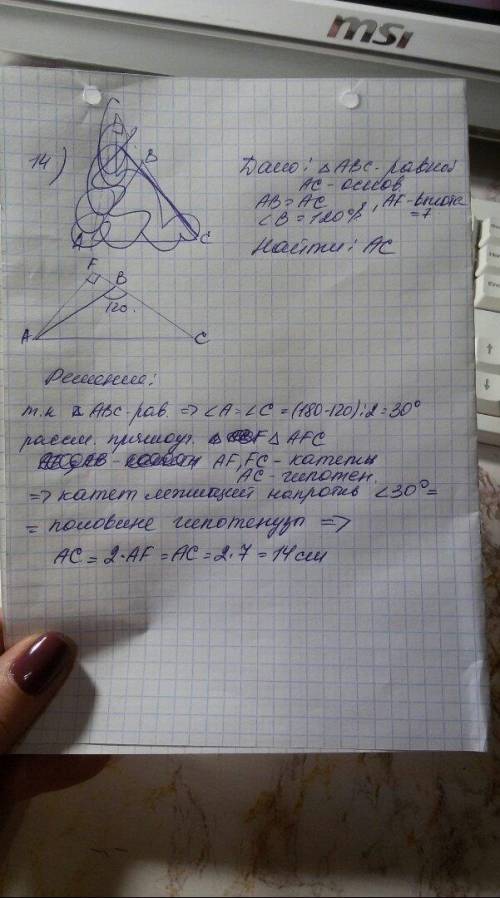 msi
14)
B
A
C
Дано: △ ABC - равноб
AC - основ.
AB = AC, AF - высота
∠B = 120°, = 7
Найти: AC
F
B
120.
A
C
Решение:
т.к △ ABC - рав. => ∠A = ∠C = (180-120):2 = 30°
рассм. прямоуг. △ AFC
AF, FC - катеты
AC - гипотен.
=> катет лежащий напротив ∠30° =
= половине гипотенузы =>
AC = 2·AF = AC = 2·7 = 14 см